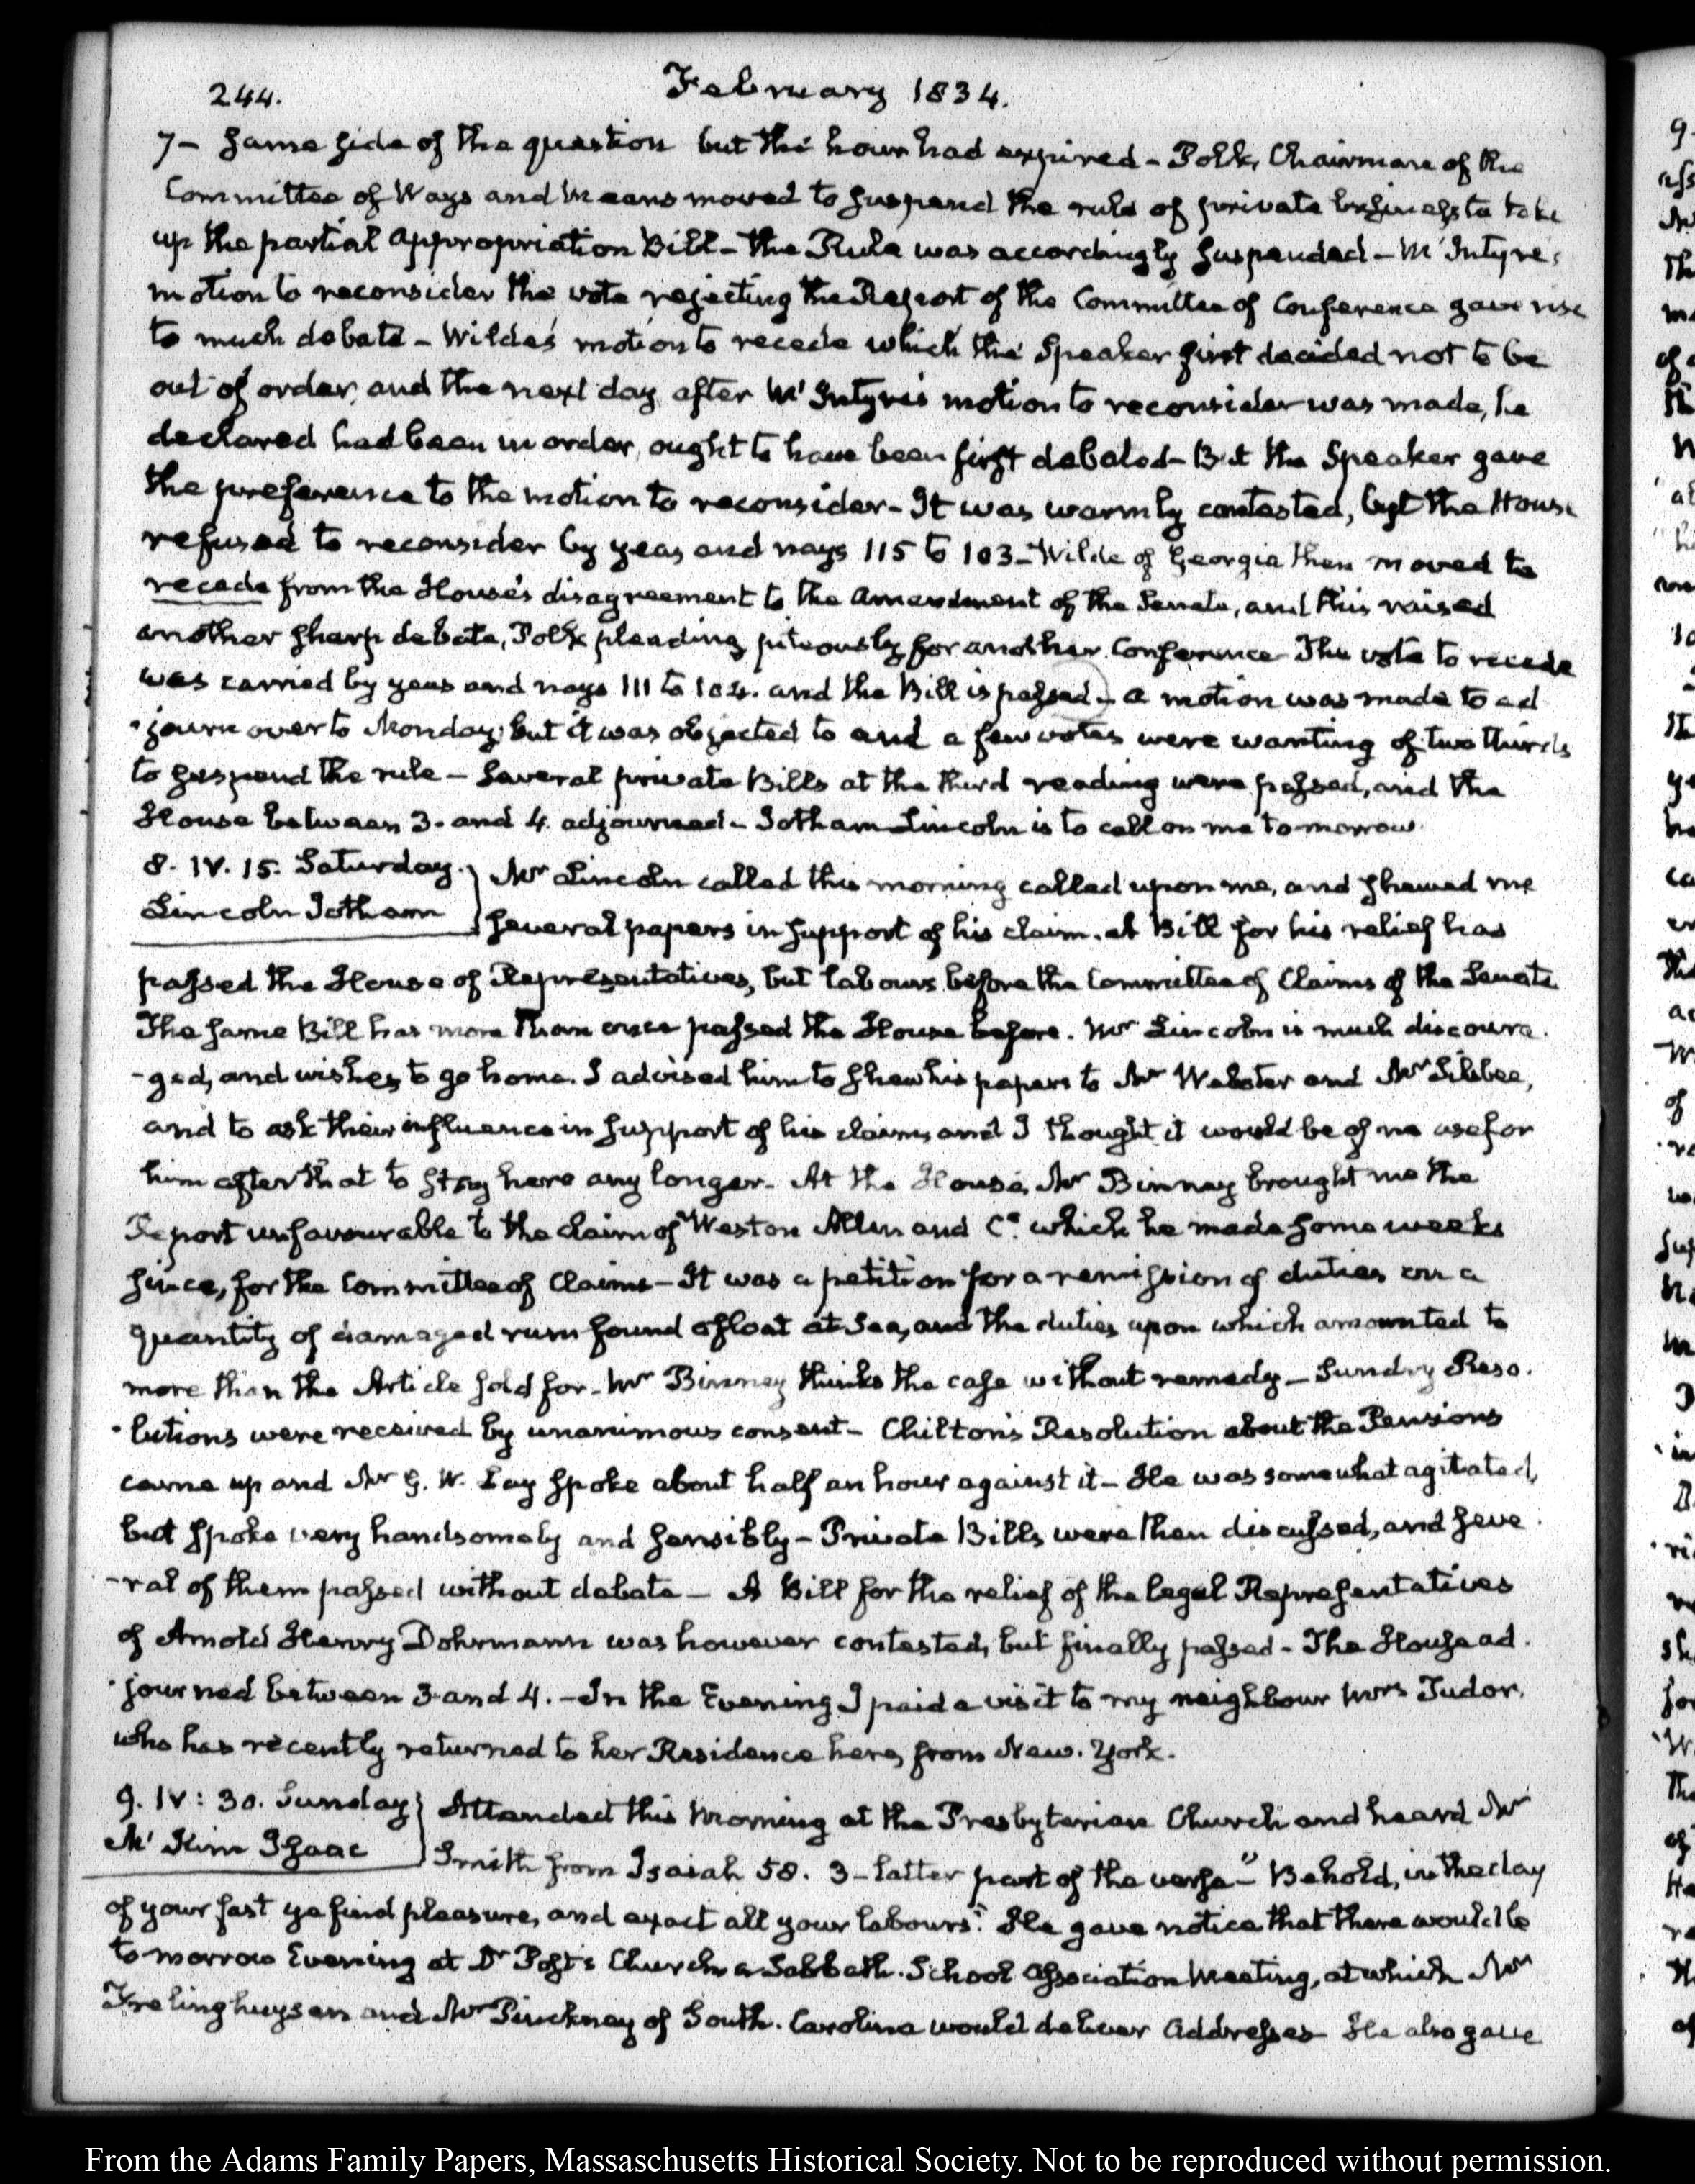 244.
February 1834.
7– same side of the question but the hour had expired – Polk, Chairman of the
Committee of Ways and Means moved to suspend the rule of private business to take
up the partial appropriation Bill – the Rule was accordingly suspended – M'Intyre's
motion to reconsider the vote rejecting the Report of the Committee of Conference gave rise
to much debate – Wilde's motion to recede which the Speaker first decided not to be
out of order, and the next day, after M'Intyre's motion to reconsider was made, he
declared had been in order, ought to have been first debated – But the Speaker gave
the preference to the motion to reconsider – It was warmly contested, but the House
refused to reconsider by yeas and nays 115 to 103 – Wilde of Georgia then moved to
recede from the House's disagreement to the amendment of the Senate, and this raised
another sharp debate, Polk pleading piteously for another Conference – The vote to recede
was carried by yeas and nays 111 to 104. and the Bill is passed – a motion was made to ad
-journ over to Monday; but it was objected to and a few votes were wanting of two thirds
to suspend the rule – several private Bills at the third reading were passed, and the
House between 3. and 4. adjourned – Jotham Lincoln is to call on me to-morrow.
8. IV. 15. Saturday. } Mr Lincoln called this morning called upon me, and shewed me
Lincoln Jotham } several papers in support of his claim. A Bill for his relief has
passed the House of Representatives, but labours before the Committee of Claims of the Senate.
The same Bill has more than once passed the House before. Mr Lincoln is much discoura-
-ged, and wishes to go home. I advised him to shew his papers to Mr Webster and Mr Silsbee,
and to ask their influence in support of his claim, and I thought it would be of no use for
him after that to stay here any longer – At the House, Mr Binney brought me the
Report unfavourable to the claim of Weston Allen and Co. which he made some weeks
since, for the Committee of Claims – It was a petition for a remission of duties on a
quantity of damaged rum found afloat at Sea, and the duties upon which amounted to
more than the Article sold for – Mr Binney thinks the case without remedy – Sundry Reso-
-lutions were received by unanimous consent – Chilton's Resolution about the Pensions
came up and Mr G. W. Lay spoke about half an hour against it – He was somewhat agitated,
but spoke very handsomely and sensibly – Private Bills were then discussed, and seve-
-ral of them passed without debate – A Bill for the relief of the legal Representatives
of Arnold Henry Dohrmann was however contested, but finally passed – The House ad-
-journed between 3 and 4. – In the Evening I paid a visit to my neighbour Mrs Tudor,
who has recently returned to her Residence here, from New-York.
9. IV: 30. Sunday } Attended this Morning at the Presbyterian Church and heard Mr
M'Kim Isaac } Smith from Isaiah 58. 3 – latter part of the verse – "Behold, in the day
of your fast ye find pleasure, and exact all your labours." He gave notice that there would be
to-morrow Evening at Dr Post's Church a Sabbath-School Association Meeting, at which Mr
Frelinghuysen and Mr Pinckney of South-Carolina would deliver Addresses – He also gave
From the Adams Family Papers, Massaschusetts Historical Society. Not to be reproduced without permission.